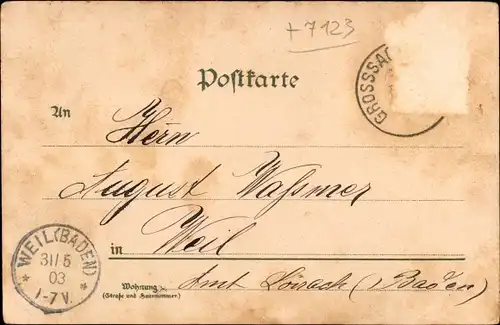 + 7123
GROSSSA
Postkarte
An
Herrn
August Waßmer
in Weil
Amt Lörrach (Baden)
Wohnung
(Straße und Hausnummer)
WEIL (BADEN)
31/5
03
1-7 V.